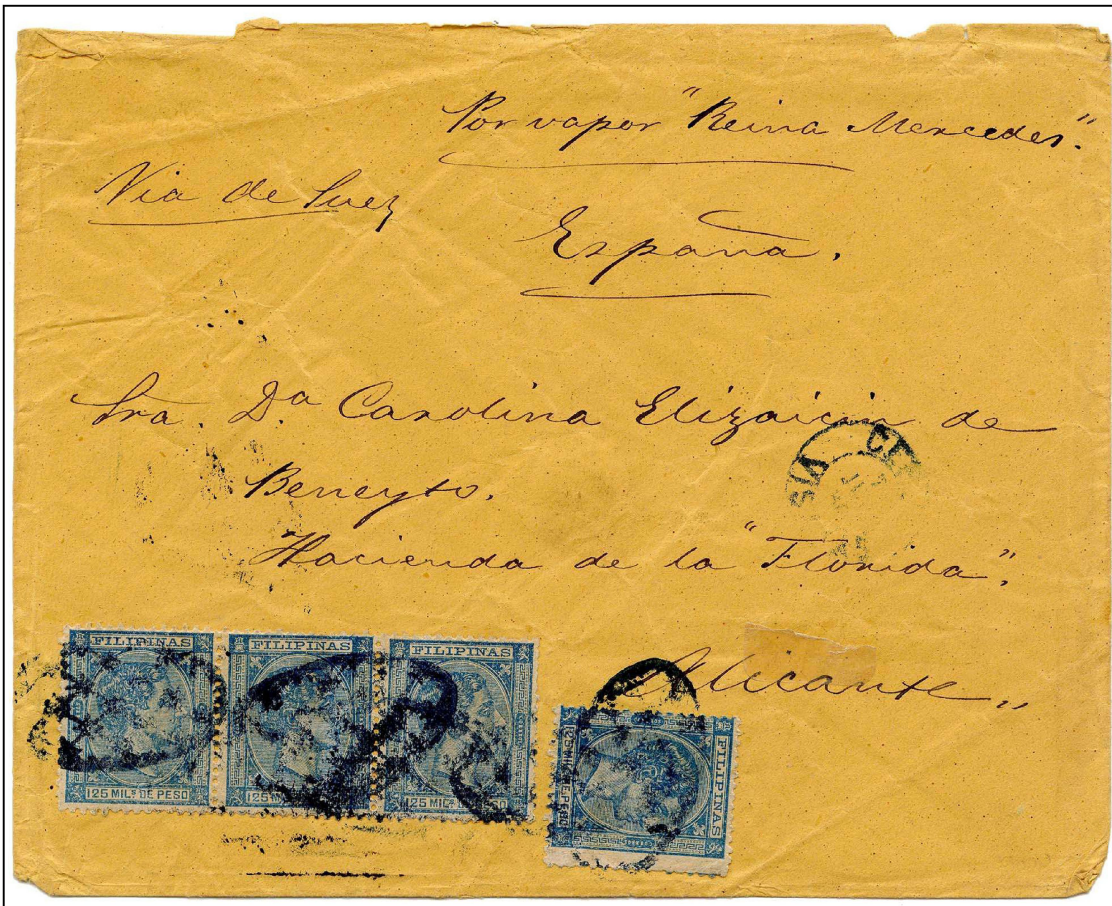 Por vapor "Reina Mercedes".
Via de Suez
España.
Sra. Dª Carolina Elizaicin de
Beneyto.
Hacienda de la "Florida".
Alicante
FILIPINAS FILIPINAS FILIPINAS
125 MILˢ DE PESO 125 MILˢ DE PESO
FILIPINAS
125 MILˢ DE PESO